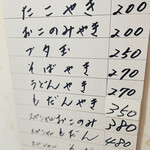 たこやき 200
おこのみやき 200
ブタ玉 250
そばやき 270
うどんやき 270
もだんやき 350
スペシャルおこのみ 380
スペシャルもだん 480